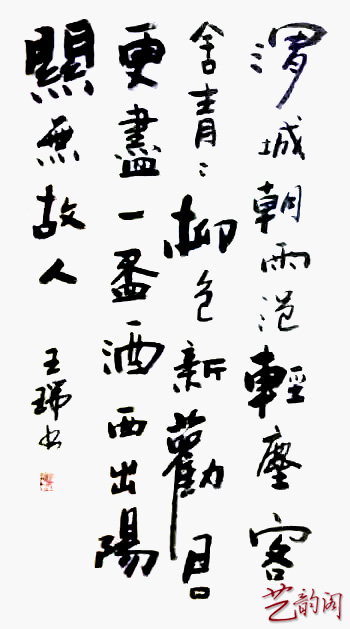 渭城朝雨浥輕塵客
舍青〻柳色新勸君
更盡一盃酒西出陽
關無故人
王瑞书
艺韵阁